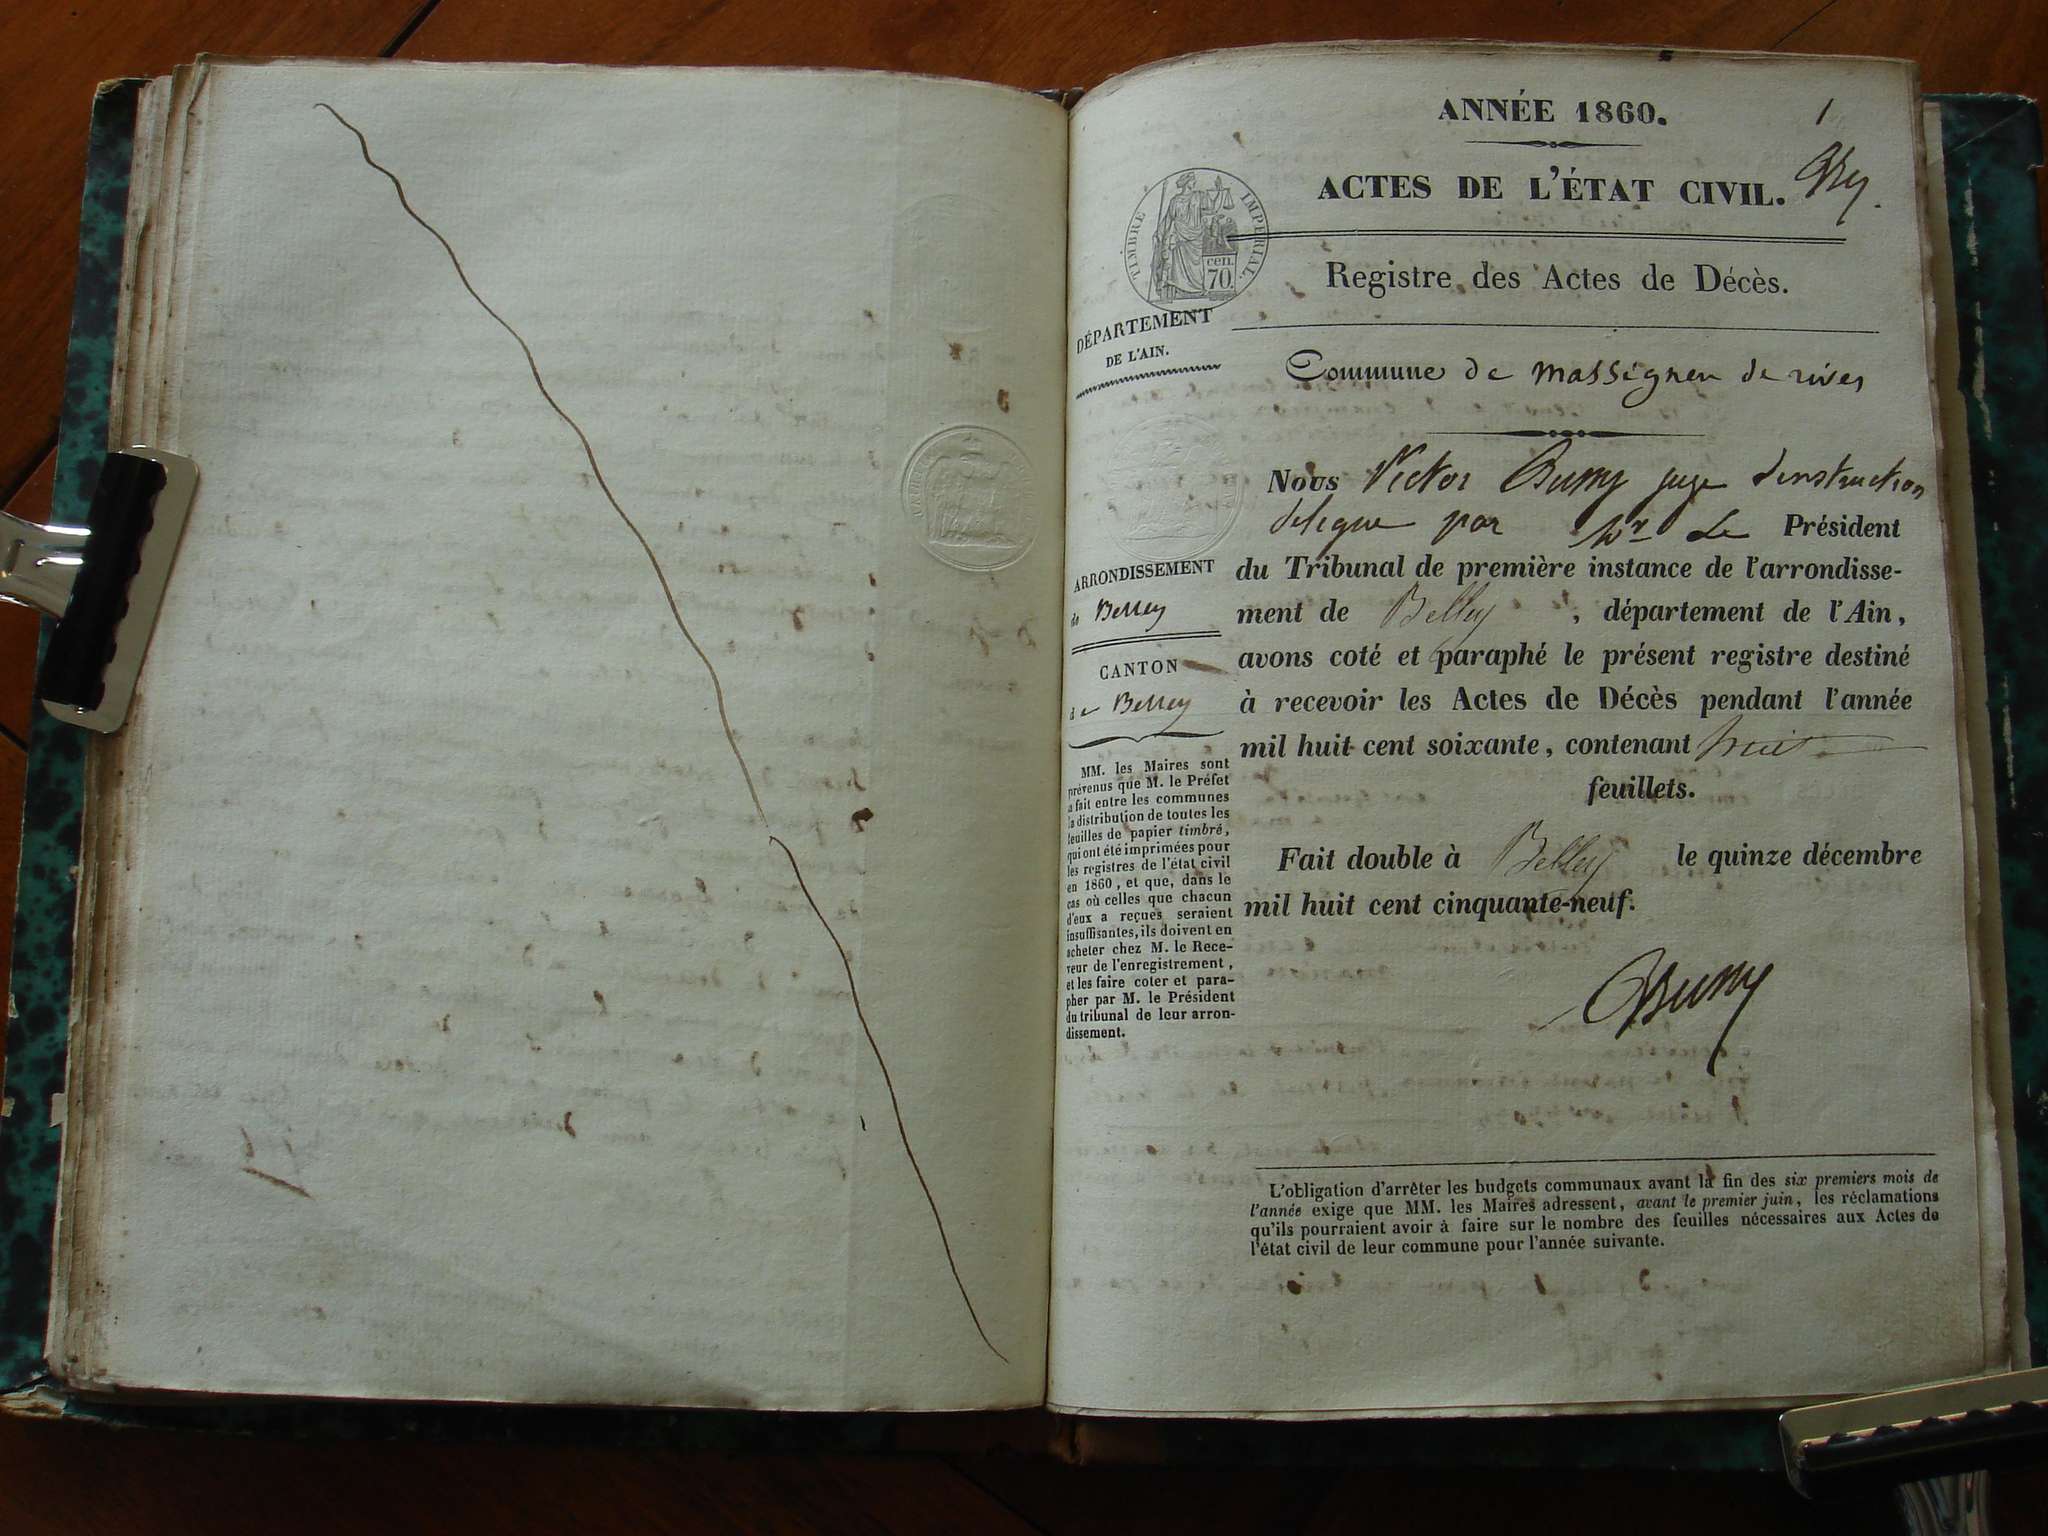 ANNÉE 1860.
1
ACTES DE L'ÉTAT CIVIL.
TIMBRE IMPÉRIAL.
cen.
70.
Registre des Actes de Décès.
DÉPARTEMENT
DE L'AIN.
Commune de Massigneu de rives
Nous Victor juge d'instruction
délégué par Mr Le Président
du Tribunal de première instance de l'arrondisse-
ment de Belley, département de l'Ain,
avons coté et paraphé le présent registre destiné
à recevoir les Actes de Décès pendant l'année
mil huit cent soixante, contenant huit
feuillets.
Fait double à Belley le quinze décembre
mil huit cent cinquante-neuf.
ARRONDISSEMENT
de Belley
CANTON
de Belley
MM. les Maires sont
prévenus que M. le Préfet
a fait entre les communes
la distribution de toutes les
feuilles de papier timbré,
qui ont été imprimées pour
les registres de l'état civil
en 1860, et que, dans le
cas où celles que chacun
d'eux a reçues seraient
insuffisantes, ils doivent en
acheter chez M. le Rece-
veur de l'enregistrement,
et les faire coter et para-
pher par M. le Président
du tribunal de leur arron-
dissement.
L'obligation d'arrêter les budgets communaux avant la fin des six premiers mois de
l'année exige que MM. les Maires adressent, avant le premier juin, les réclamations
qu'ils pourraient avoir à faire sur le nombre des feuilles nécessaires aux Actes de
l'état civil de leur commune pour l'année suivante.